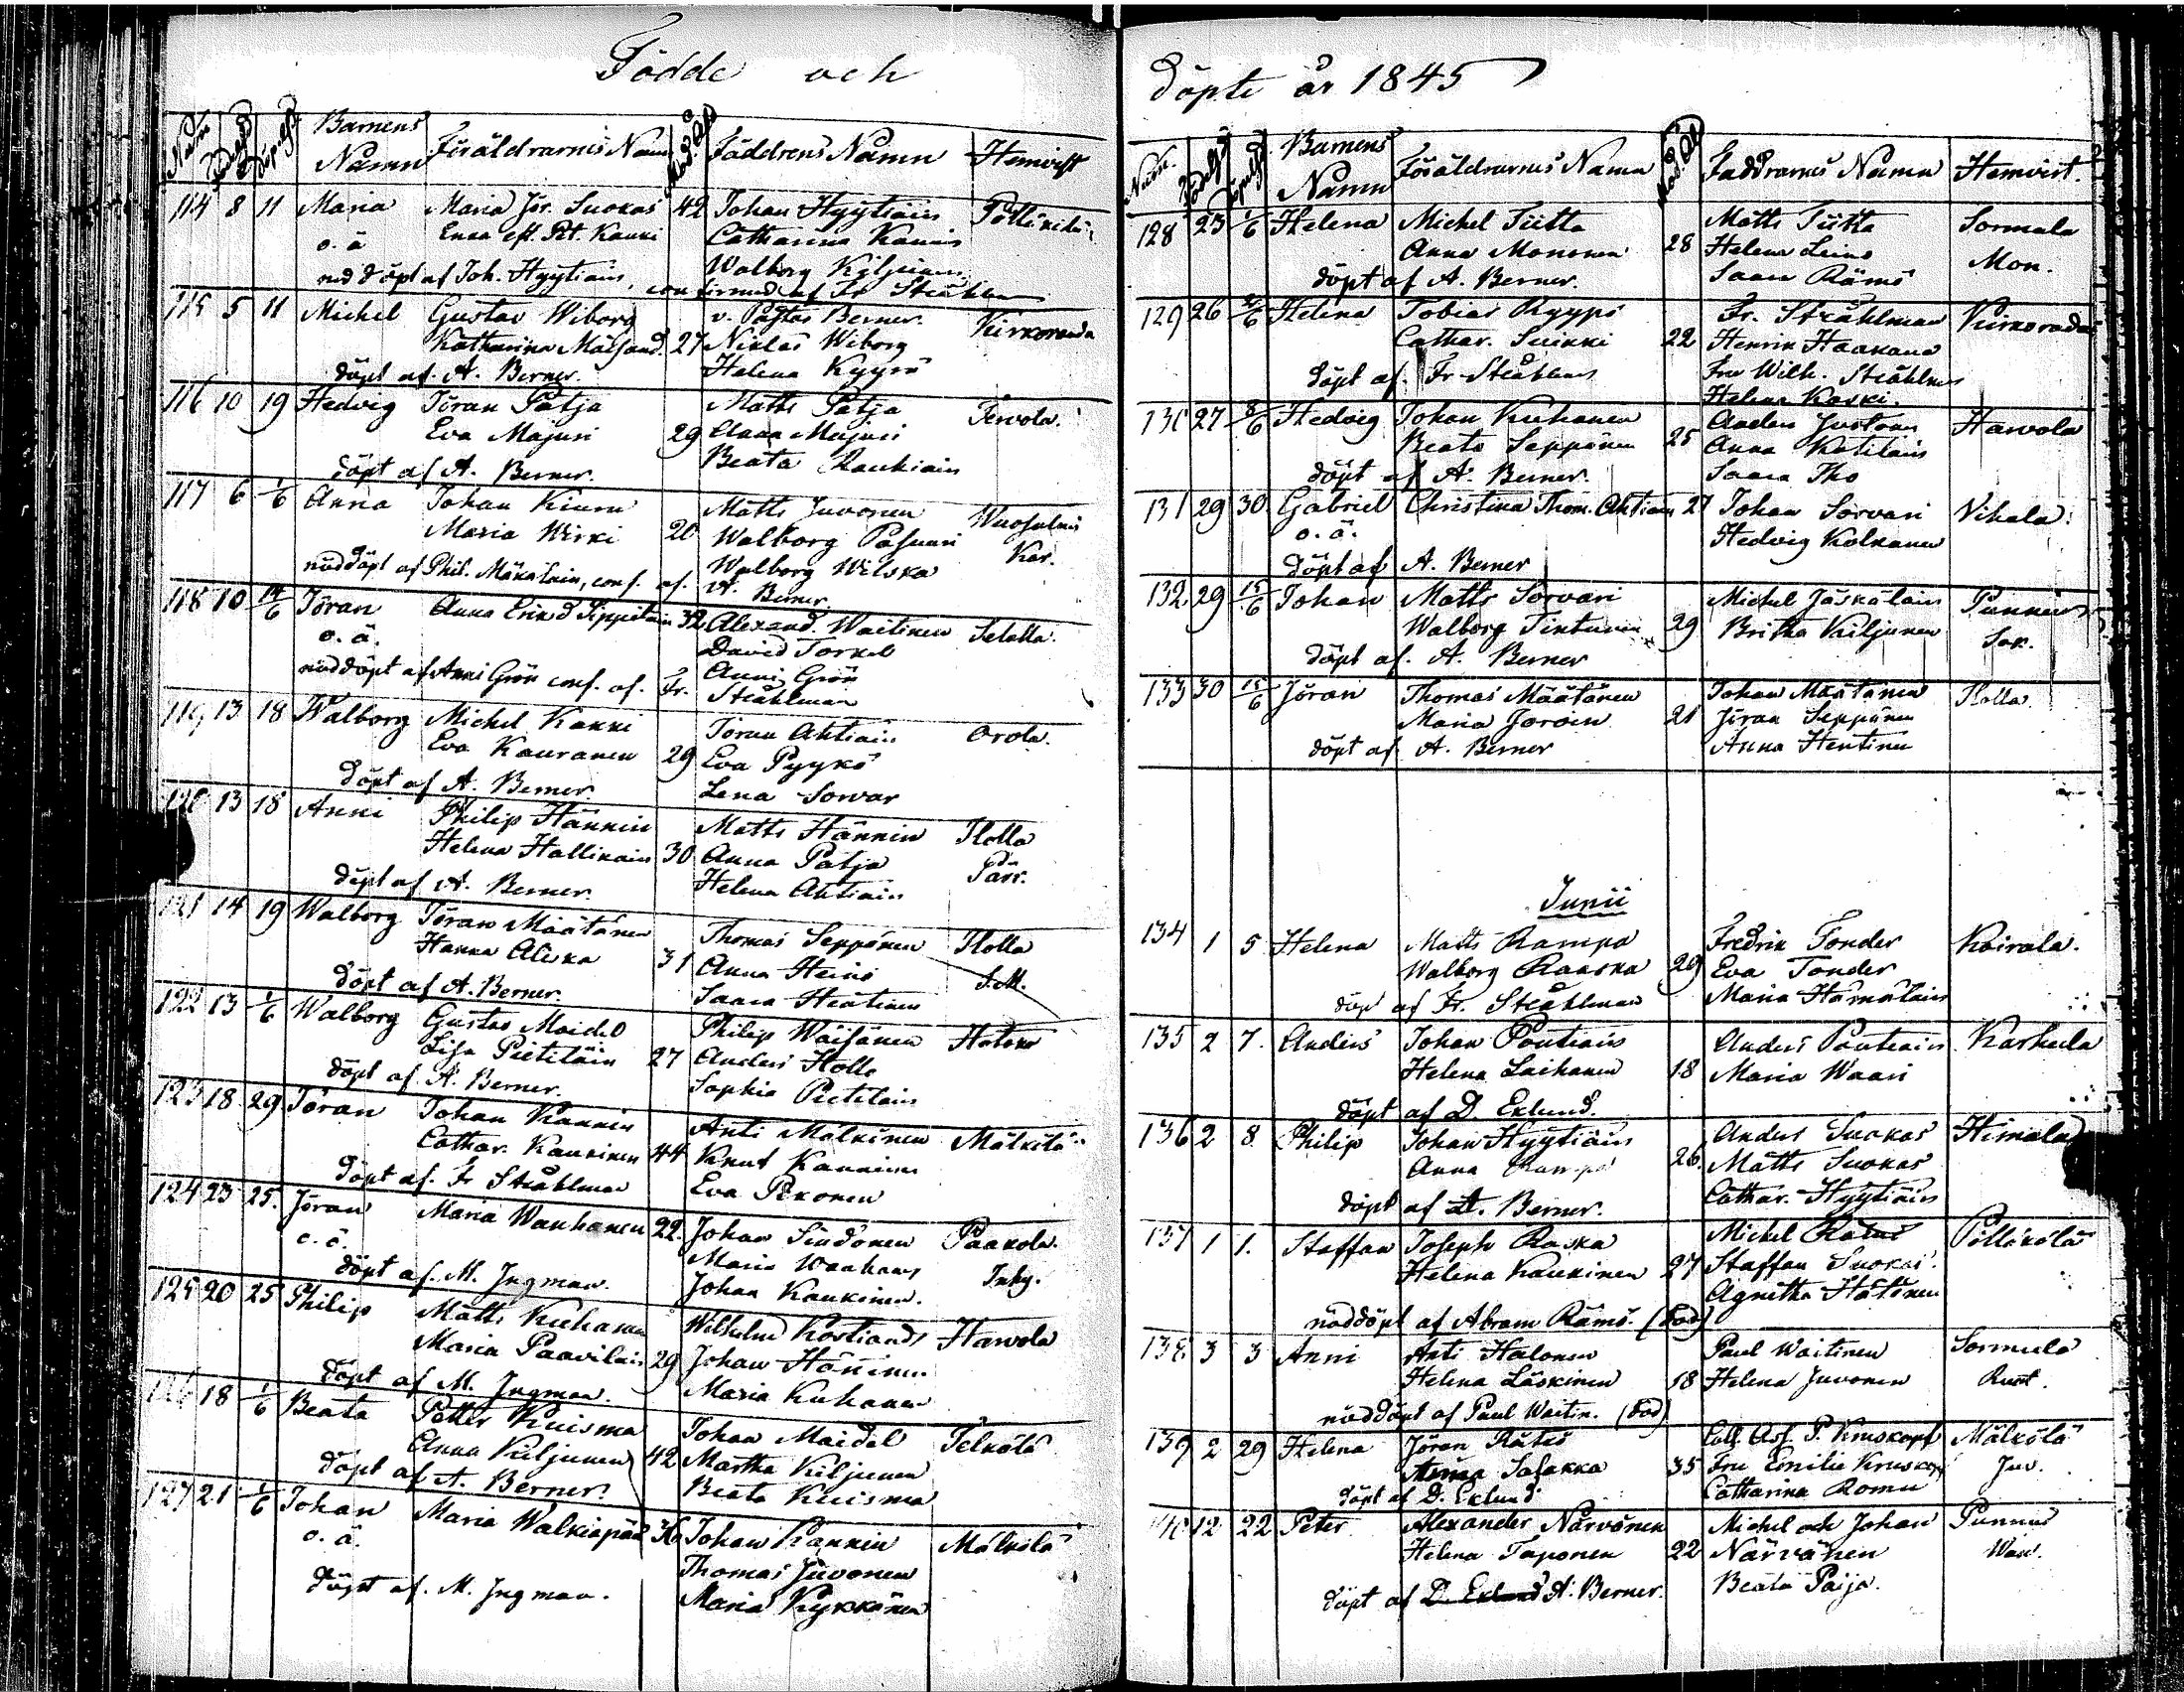 Födde och
Barnens Namn Föräldrarnes Namn Faddrens Namn Hemvist
114 8 11 Maria Maria Jör. Suokas 42 Johan Hyytiäin Pölläkälä
o. ä Enka eft. Pet. Kauki Catharina Kauki
nöddöpt af Joh. Hyytiäin, confirmed af Fr. Stråhlman Walborg Kiljunen
115 5 11 Michel Gustav Wiborg v. Pastor Berner. Kirkoranda
Katharina Mälsand. 27 Niklas Wiborg
döpt af A. Berner. Helena Kyyrö
116 10 19 Hedvig Jöran Patja Matts Patja Tervola.
Eva Majuri 29 Anna Majuri
döpt af A. Berner. Beata Raukiain
117 6 1/6 Anna Johan Kiuru Matts Juvonen Wuosalmi
Maria Wirki 20 Walborg Pasuri Kar.
nöddöpt af Phil. Mäkäläin, conf. af. A. Berner Walborg Wilska
118 10 14/6 Jöran Anna Erik d Sippolain 32 Alexand. Waitinen Selälla.
o. ä. David Torkel
nöddöpt af Anni Grön conf. af. Fr. Stråhlman Anni Grön
119 13 18 Walborg Michel Kakki Jöran Ahtiain Orola.
Eva Kauranen 29 Eva Pyykö
döpt af A. Berner. Lena Sorvar
120 13 18 Anni Philip Hännin Matts Hännin Ilolla
Helena Hallikain 30 Anna Patja Pärr.
döpt af A. Berner. Helena Ahtiain
121 14 19 Walborg Jöran Määtänen Thomas Seppönen Ilolla
Hanna Aliska 31 Anna Heinö S.M.
döpt af A. Berner. Saara Heätinen
122 13 1/6 Walborg Gustav Maidel Philip Wäisänen Hatoka
Lisa Pietiläin 27 Anders Holle
döpt af A. Berner. Sophia Pietiläin
123 18 29 Jöran Johan Kannin Anti Mälkinen Mälkölä
Cathar. Kaukinen 44 Knut Kauninen
döpt af. Fr Stråhlman Eva Pekonen
124 23 25. Jöran Maria Wanhanen 22. Johan Sindonen Paakola.
o. ä. Maria Wanhanen Inky.
döpt af. M. Ingman. Johan Kaukinen.
125 20 25 Philip Matts Kuhanen Wilhelm Kostiands Hawola
Maria Paavilain 29 Johan Hänninen
döpt af M. Ingman. Maria Kuhanen
126 18 1/6 Beata Petter Kuisma Johan Maidel Telkälä
Anna Kiljunen 42 Martha Kiljunen
döpt af A. Berner. Beata Kuisma
127 21 1/6 Johan Maria Walkiapää 36 Johan Kannin Mälkölä
o. ä. Thomas Juvonen
döpt af. M. Ingman. Maria Kykkänen
döpte år 1845
Num. Barnens Namn Föräldrarnes Namn Faddrarnes Namn Hemvist.
128 23 1/6 Helena Michel Tiitta Matts Tiitta Sormula
Anna Mononen 28 Helena Leino Mon.
döpt af A. Berner. Saara Rämö
129 26 2/6 Helena Tobias Ryypö Fr. Stråhlman Kirkoranda
Cathar. Suikki 22 Henrik Haakana
döpt af. Fr Stråhlman Fru Wilh. Stråhlman
Helena Koski.
130 27 8/6 Hedvig Johan Kuhanen Anders Justonen Hawola
Beata Seppönen 25 Anna Kotilain
döpt af A. Berner. Saara Iho
131 29 30 Gabriel Christina Thom. Ahtiain 27 Johan Sorvari Vihala.
o. ä. Hedvig Kolkanen
döpt af A. Berner
132 29 15/6 Johan Matts Sorvari Michel Jäskäläin Punnus
Walborg Tinturin 29 Britha Kiljunen Sor.
döpt af. A. Berner
133 30 15/6 Jöran Thomas Määtänen Johan Määtänen Ilolla.
Maria Joroin 21 Jöran Seppönen
döpt af A. Berner Anna Hentinen
Junii
134 1 5 Helena Matts Rampa Fredrik Tonder Koirala.
Walborg Raaska 29 Eva Tonder
döpt af Fr. Stråhlman Maria Hämäläin
135 2 7. Anders Johan Pontiain Anders Pontiain Karhula
Helena Laihanen 18 Maria Waari
döpt af D. Eklund.
136 2 8 Philip Johan Hyytiäin Anders Suokas Himala
Anna Rampa 26. Matts Suokas
döpt af A. Berner. Cathar. Hyytiäin
137 1 1. Staffan Joseph Raska Michel Rätus Pölläkälä
Helena Kaukinen 27 Staffan Suokas.
nöddöpt af Abram Rämö. (död) Agnetha Hätönen
138 3 3 Anni Anti Halonen Paul Waitinen Sormula
Helena Läskinen 18 Helena Juvonen Rust.
nöddöpt af Paul Waitin. (död)
139 2 29 Helena Jöran Rätus Coll. Ass. P. Kruskopf Mälkölä
Anna Salakka 35 Fru Emilie Kruskopf Juv.
döpt af D. Eklund Catharina Romu
140 12 22 Peter Alexander Närvänen Michel och Johan Punnus
Helena Taponen 22 Närvänen Was.
döpt af D. Eklund A. Berner. Beata Paija.